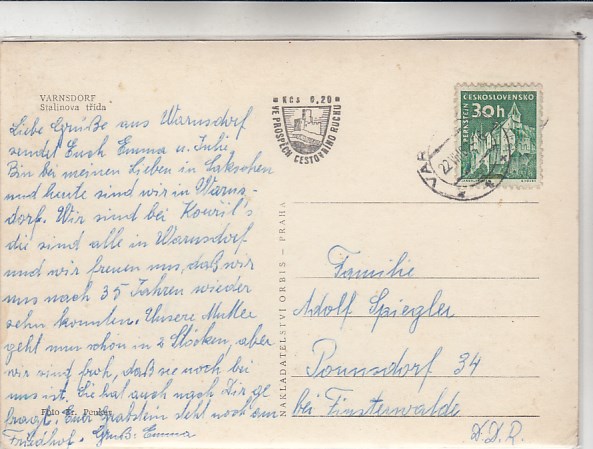 VARNSDORF
Stalinova třída
Liebe Grüße aus Warnsdorf
sendet Euch Emma u. Julie,
Bin bei meinen Lieben in Sakschen
und heute sind wir in Warns-
dorf. Wir sind bei Kouřil's
die sind alle in Warnsdorf
und wir freuen uns, daß wir
uns nach 35 Jahren wieder
sehn konnten. Unsere Mutter
geht nun schon in 2 Stöcken, aber
wir sind froh, daß sie noch bei
uns ist. Sie hat auch nach Dir ge
fragt. Euer Grabstein steht noch am
Friedhof. Gruß: Emma
Foto Fr.
Kčs 0,20
VE PROSPĚCH CESTOVNÍHO RUCHU
NAKLADATELSTVÍ ORBIS — PRAHA
ČESKOSLOVENSKO
30h
PERNŠTEJN
VAR
22.
Familie
Adolf Spiegler
Ponnsdorf 34
bei Finsterwalde
D.D.R.